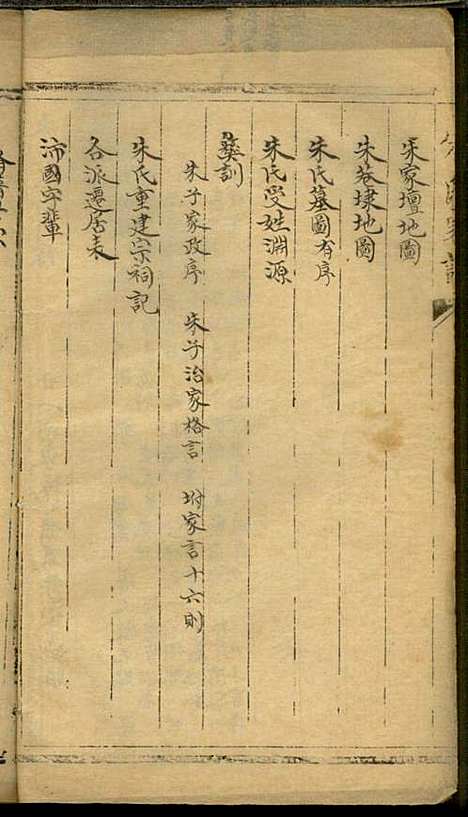 朱家壇地圖
朱巷埭地圖
朱氏墓圖有序
朱氏受姓淵源
彝訓
朱子家政序 朱子治家格言 坿家言十六則
朱氏重建宗祠記
各派遷居表
沛國字輩